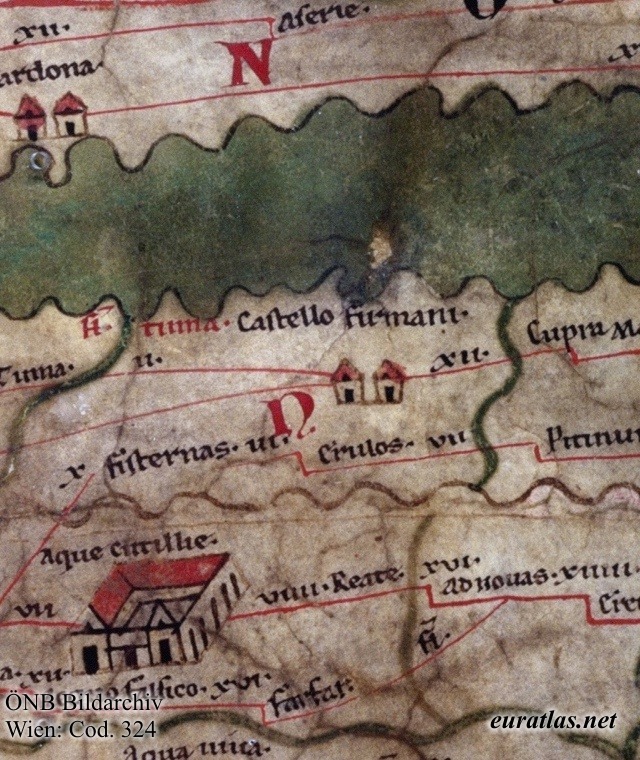 xii. Aserie.
ardona. N
fl. tinna. Castello firmani.
Tinna. ii. xii. Cupra M
N
x fisternas. Cirulos. vii Pitinu
Aque cutillie.
vii viiii. Reate. xvi. Ad novas. xiiii.
Cirv
fl.
xii. xvi. farfar.
Aqua viva.
ÖNB Bildarchiv
Wien: Cod. 324
euratlas.net